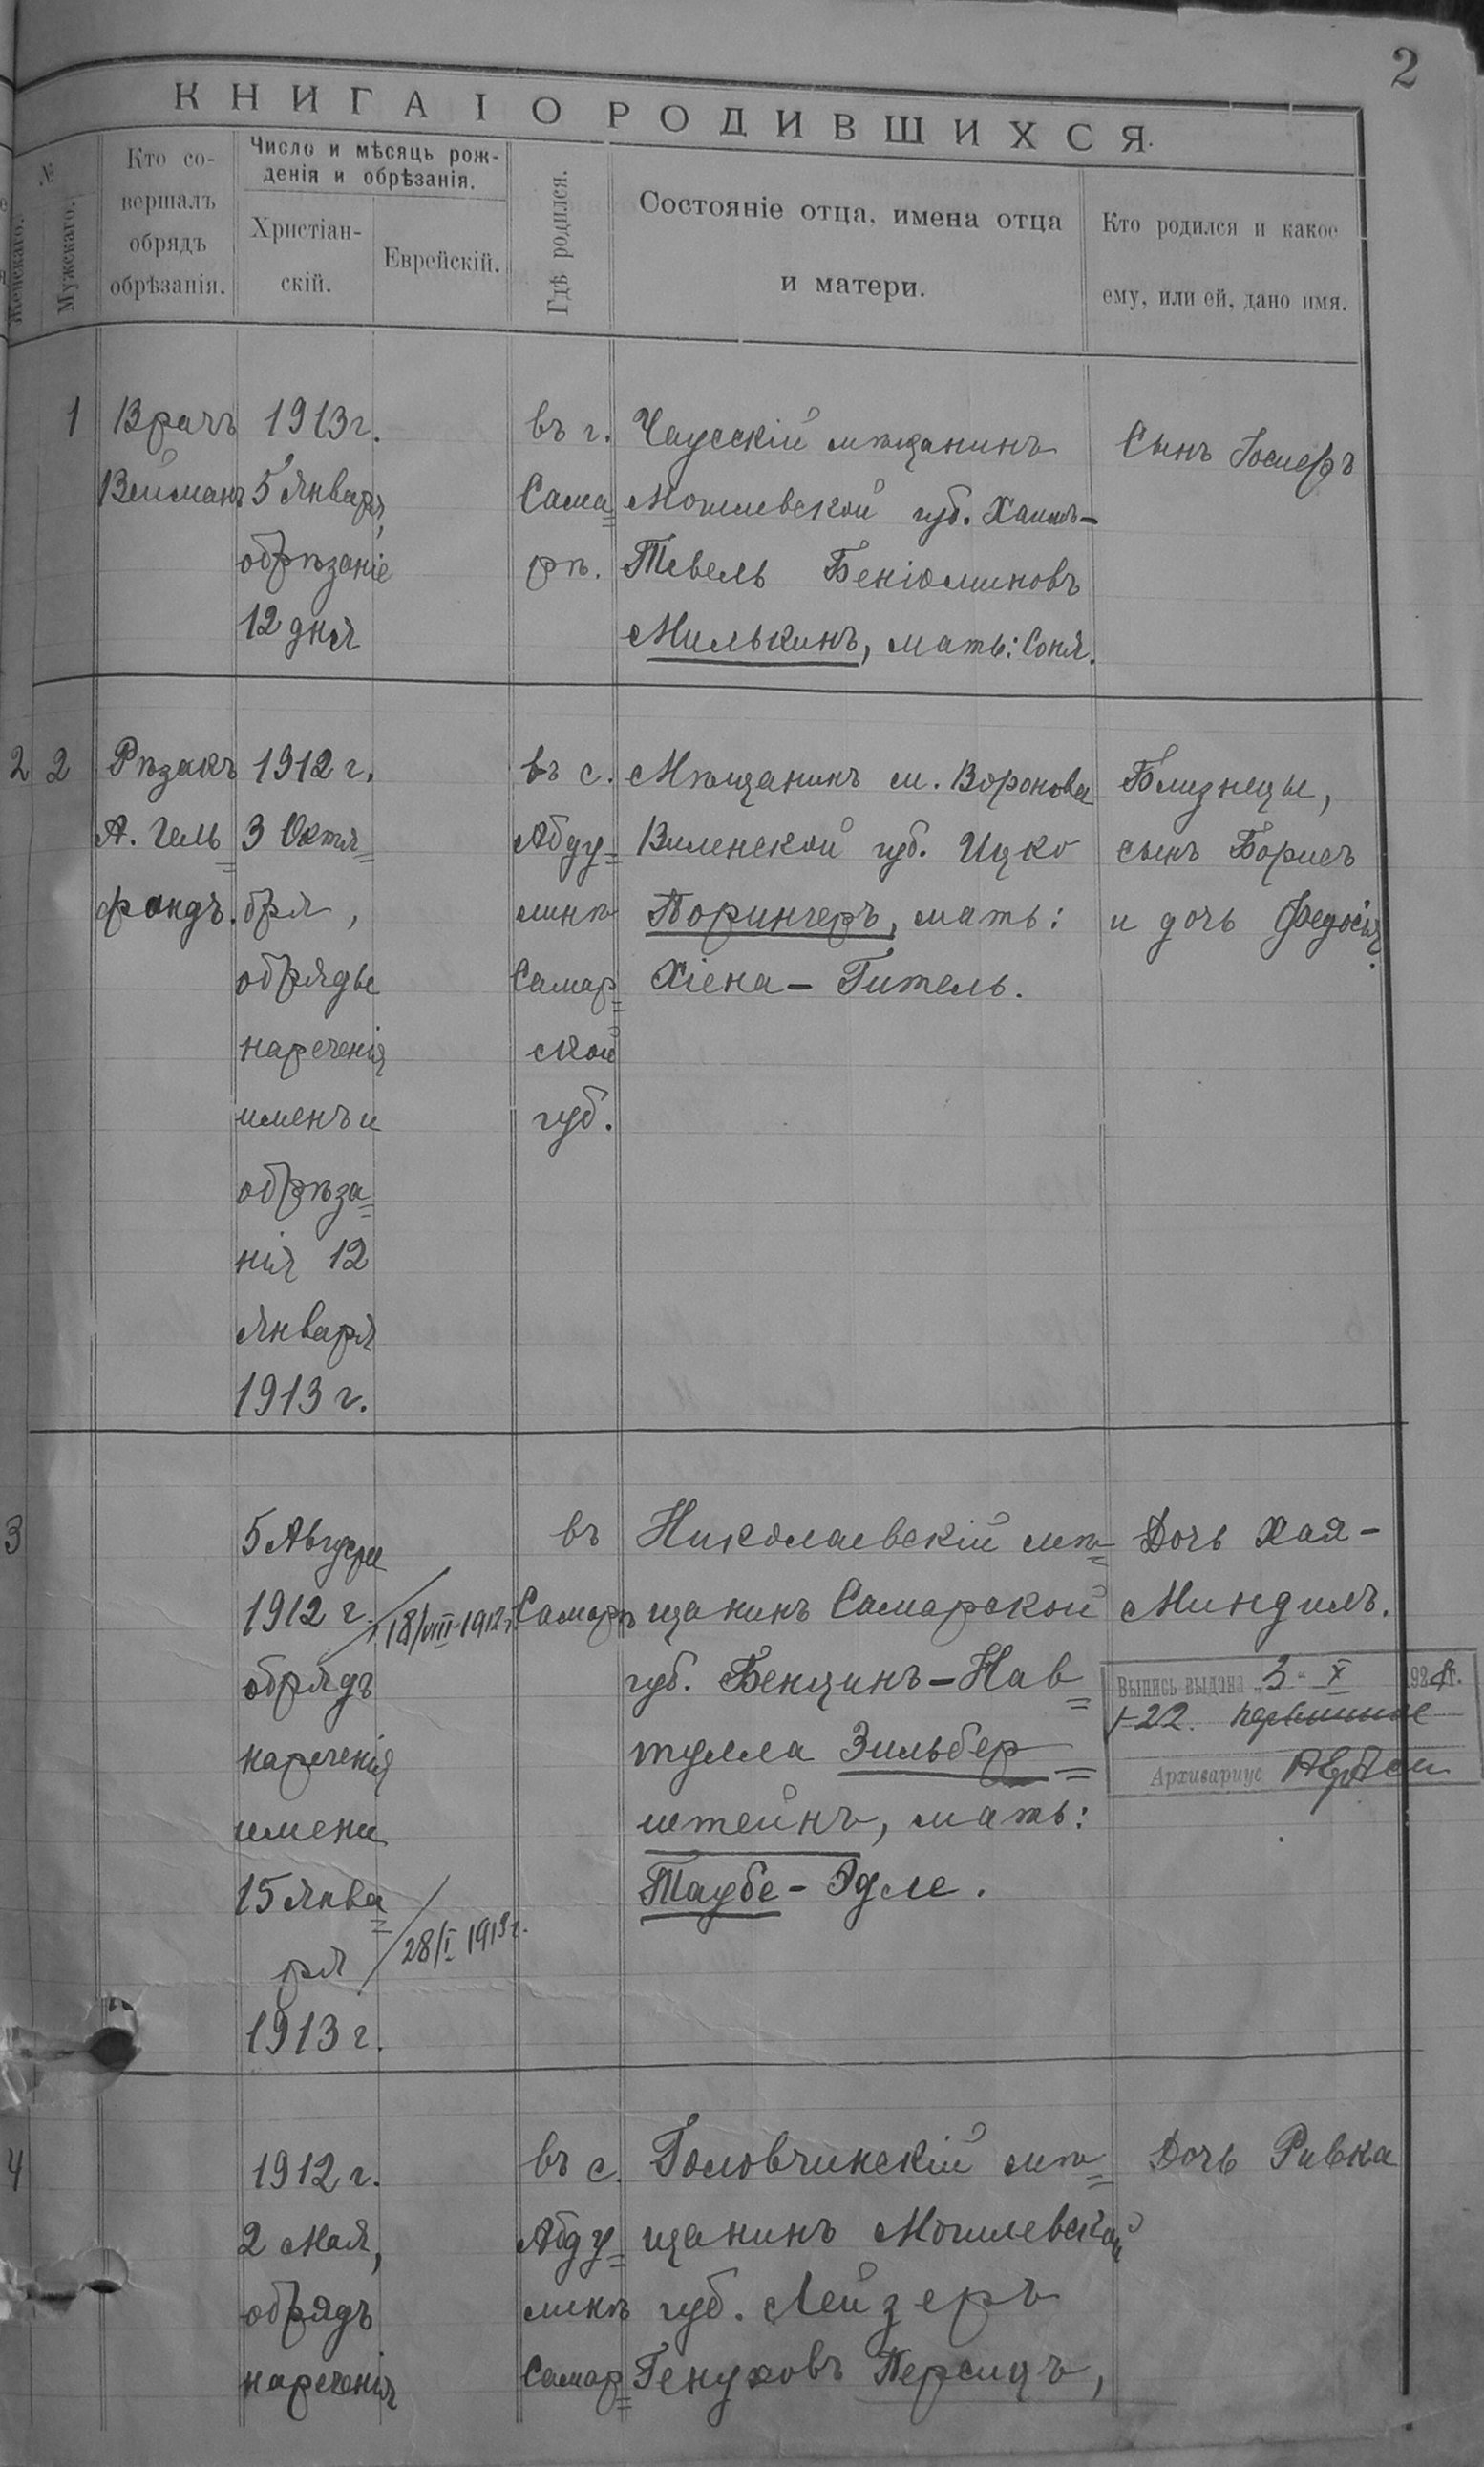 2
КНИГА I О РОДИВШИХСЯ.
№
Женскаго.
Мужскаго.
Кто со-
вершалъ
обрядъ
обрѣзанія.
Число и мѣсяцъ рож-
денія и обрѣзанія.
Христіан-
скій.
Еврейскій.
Гдѣ родился.
Состояніе отца, имена отца
и матери.
Кто родился и какое
ему, или ей, дано имя.
1
Врачъ
Вейманъ
1913 г.
5 Января,
обрѣзаніе
12 дня
въ г.
Сама=
рѣ.
Чаусскій мѣщанинъ
Могилевской губ. Хаимъ-
Тевель Беніоминовъ
Милькинъ, мать: Соня.
Сынъ Іосифъ
2 2
Рѣзакъ
А. Гель=
фондъ.
1912 г.
3 Октя=
бря,
обряды
нареченія
именъ и
обрѣза=
нія 12
Января
1913 г.
въ с.
Абду=
линѣ
Самар=
ской
губ.
Мѣщанинъ м. Воронова
Виленской губ. Ицко
Порингеръ, мать:
Хіена-Гитель.
Близнецы,
сынъ Борисъ
и дочь Федосія.
3
5 Августа
1912 г.
обрядъ
нареченія
имени
15 Янва=
ря
1913 г.
18/VIII-1912 г.
28/I 1913 г.
въ
Самарѣ
Николаевскій мѣ=
щанинъ Самарской
губ. Бенцинъ-Нав=
тулла Зильбер=
штейнъ, мать:
Таубе-Эдле.
Дочь Хая-
Миндиль.
Выпись выдана „3“ X 192 г.
Архивариус
4
1912 г.
2 Мая,
обрядъ
нареченія
въ с.
Абду=
линѣ
Самар=
Головчинскій мѣ=
щанинъ Могилевской
губ. Лейзеръ
Генуховъ Персицъ,
Дочь Ривка